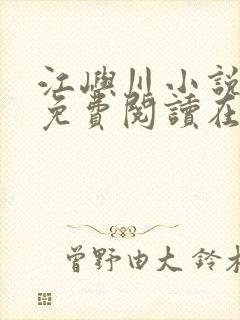 江嶼川小說
免費閱讀在
曾野由大 鈴木